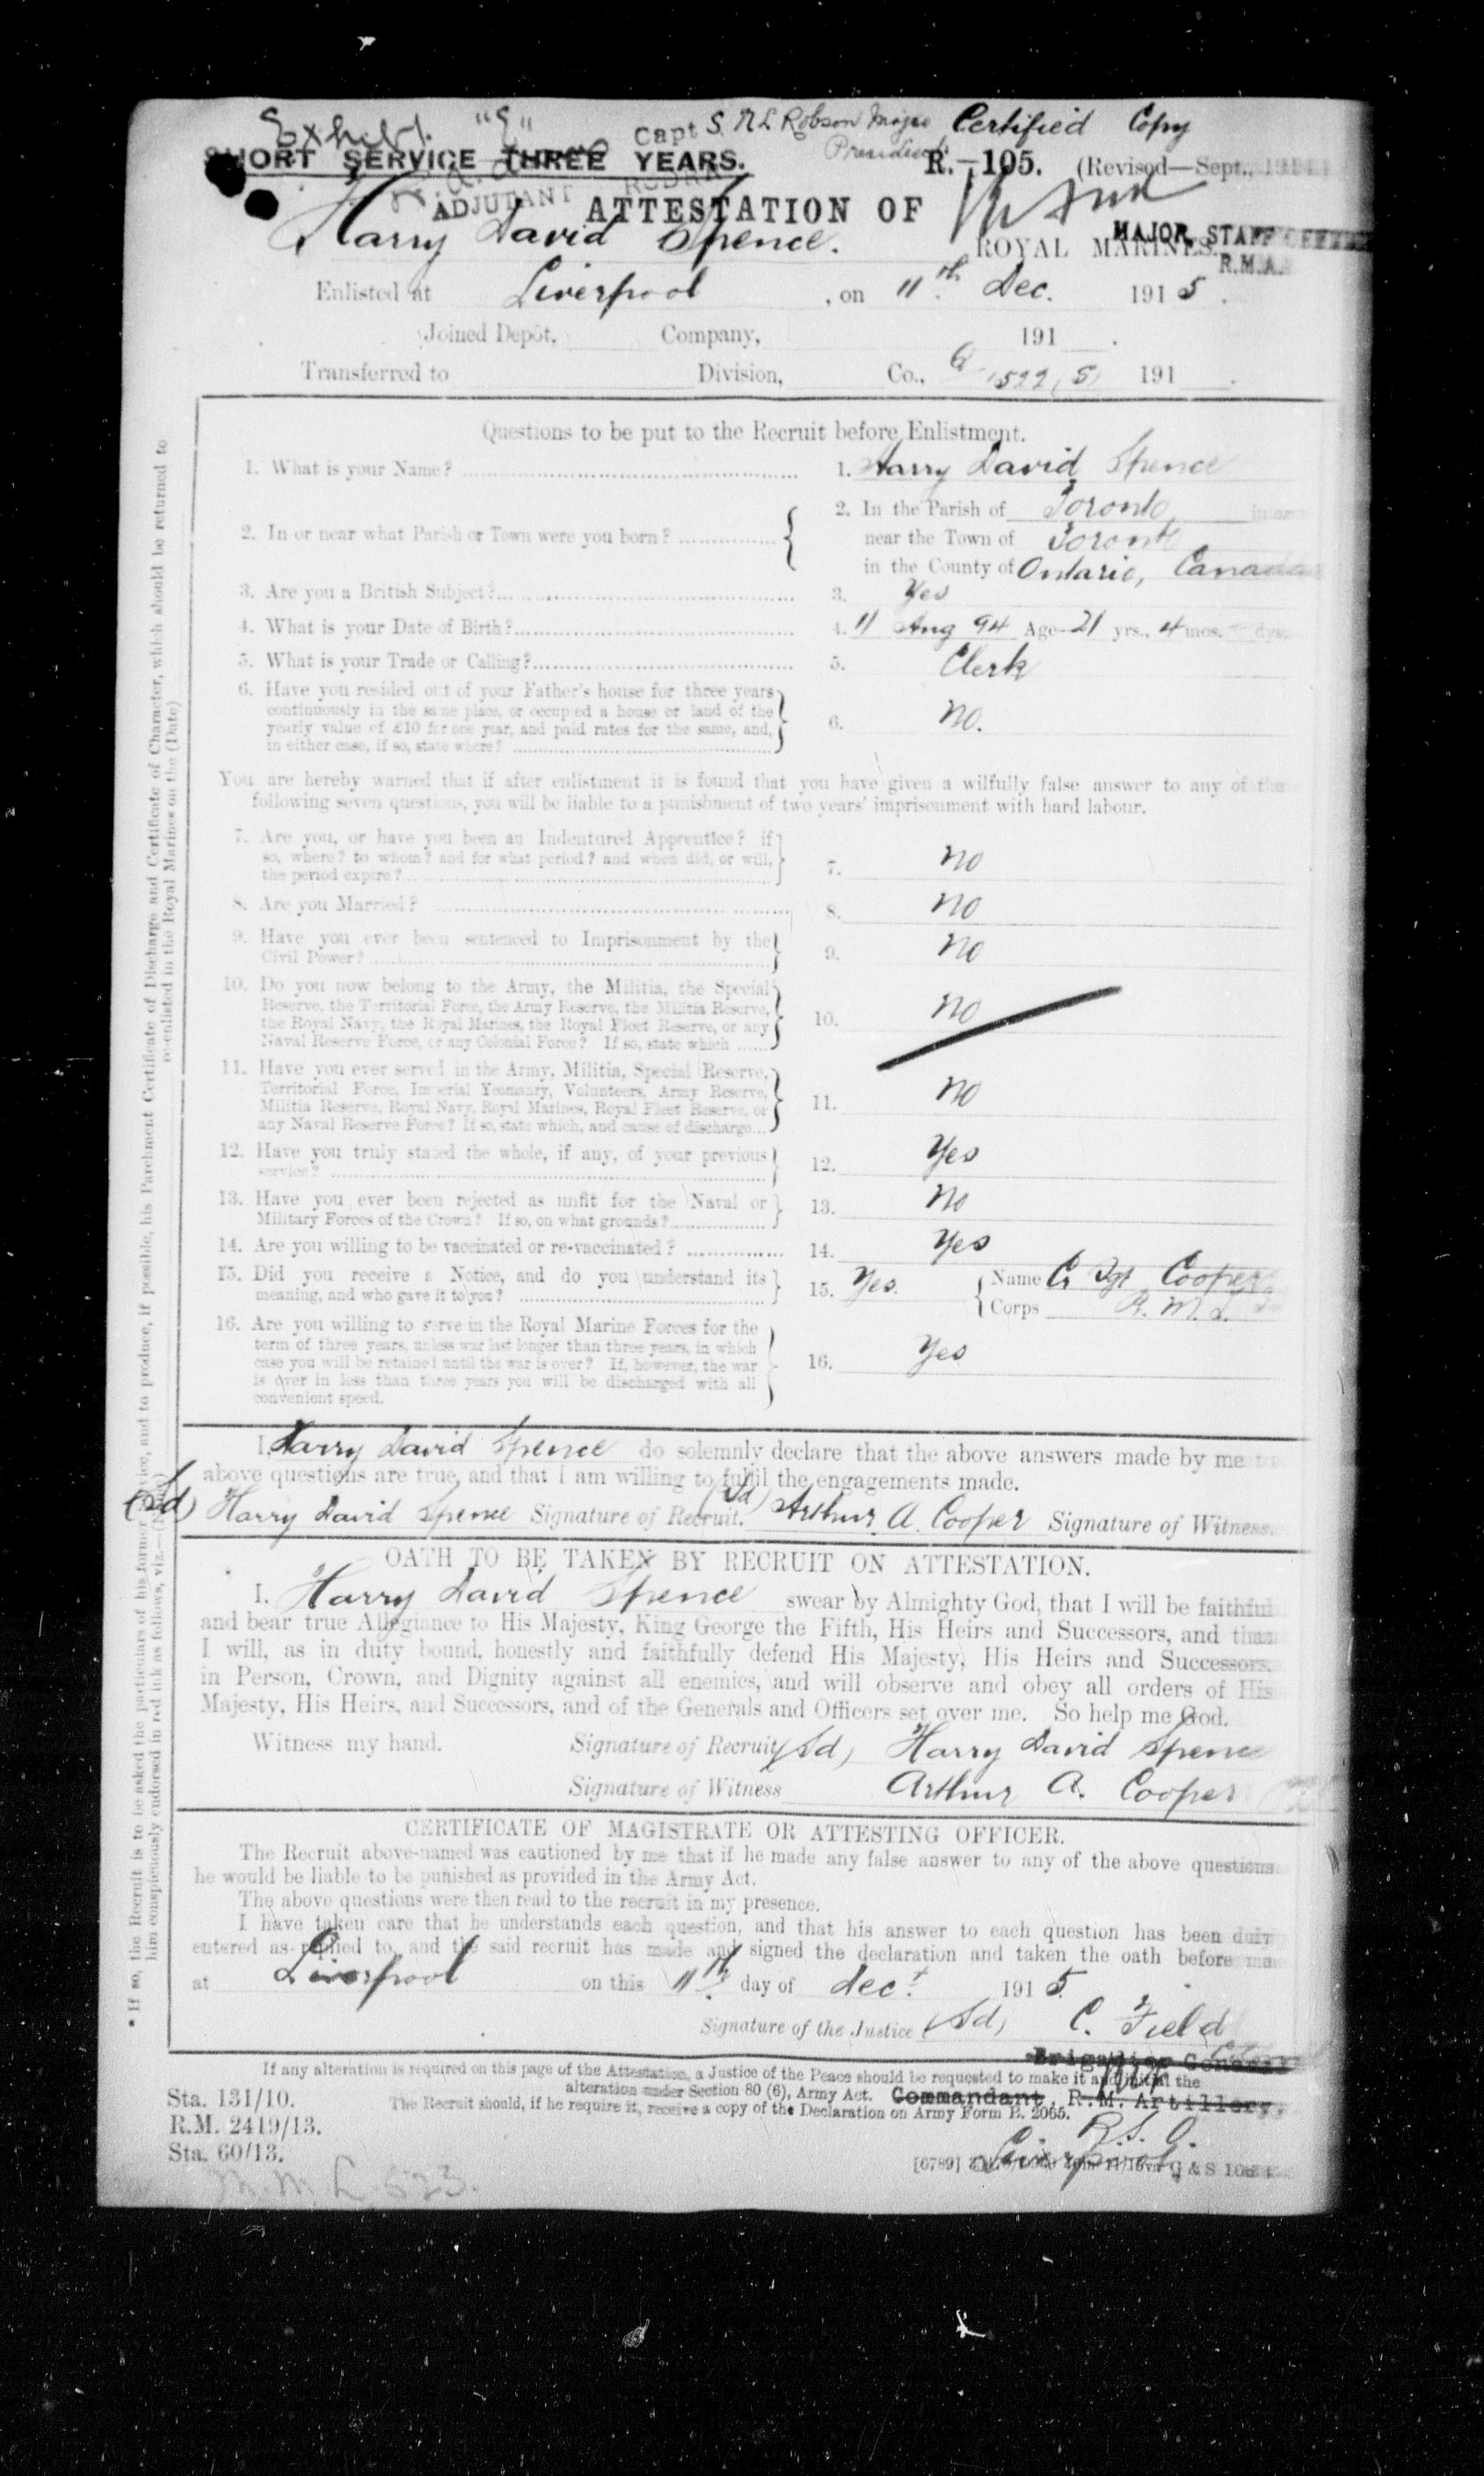 Exhibit "S" Capt S. N L Robson Major Certified Copy
President
SHORT SERVICE THREE YEARS. R.—105. (Revised—Sept.,
ADJUTANT
ATTESTATION OF
Harry David Spence. ROYAL MARINES. MAJOR, STAFF OFFICER
R.M.A.
Enlisted at Liverpool, on 11th Dec. 1915.
Joined Depôt, Company, 191 .
Transferred to Division, Co., 1522 (S) 191 .
Questions to be put to the Recruit before Enlistment.
1. What is your Name? 1. Harry David Spence
2. In or near what Parish or Town were you born? 2. In the Parish of Toronto, in or
near the Town of Toronto
in the County of Ontario, Canada
3. Are you a British Subject? 3. Yes
4. What is your Date of Birth? 4. 11 Aug 94 Age 21 yrs., 4 mos. dys.
5. What is your Trade or Calling? 5. Clerk
6. Have you resided out of your Father's house for three years
continuously in the same place, or occupied a house or land of the
yearly value of £10 for one year, and paid rates for the same, and,
in either case, if so, state where? 6. No.
You are hereby warned that if after enlistment it is found that you have given a wilfully false answer to any of the
following seven questions, you will be liable to a punishment of two years' imprisonment with hard labour.
7. Are you, or have you been an Indentured Apprentice? if
so, where? to whom? and for what period? and when did, or will,
the period expire? 7. No
8. Are you Married? 8. No
9. Have you ever been sentenced to Imprisonment by the
Civil Power? 9. No
10. Do you now belong to the Army, the Militia, the Special
Reserve, the Territorial Force, the Army Reserve, the Militia Reserve,
the Royal Navy, the Royal Marines, the Royal Fleet Reserve, or any
Naval Reserve Force, or any Colonial Force? If so, state which 10. No
11. Have you ever served in the Army, Militia, Special Reserve,
Territorial Force, Imperial Yeomanry, Volunteers, Army Reserve,
Militia Reserve, Royal Navy, Royal Marines, Royal Fleet Reserve, or
any Naval Reserve Force? If so, state which, and cause of discharge 11. No
12. Have you truly stated the whole, if any, of your previous
service? 12. Yes
13. Have you ever been rejected as unfit for the Naval or
Military Forces of the Crown? If so, on what grounds? 13. No
14. Are you willing to be vaccinated or re-vaccinated? 14. Yes
15. Did you receive a Notice, and do you understand its
meaning, and who gave it to you? 15. Yes. Name Cr Sgt Cooper
Corps R. M. L. I.
16. Are you willing to serve in the Royal Marine Forces for the
term of three years, unless war last longer than three years, in which
case you will be retained until the war is over? If, however, the war
is over in less than three years you will be discharged with all
convenient speed. 16. Yes
I, Harry David Spence do solemnly declare that the above answers made by me to
above questions are true, and that I am willing to fulfil the engagements made.
(Sd) Harry David Spence Signature of Recruit. (Sd) Arthur A. Cooper Signature of Witness.
OATH TO BE TAKEN BY RECRUIT ON ATTESTATION.
I, Harry David Spence swear by Almighty God, that I will be faithful
and bear true Allegiance to His Majesty, King George the Fifth, His Heirs and Successors, and that
I will, as in duty bound, honestly and faithfully defend His Majesty, His Heirs and Successors,
in Person, Crown, and Dignity against all enemies, and will observe and obey all orders of His
Majesty, His Heirs, and Successors, and of the Generals and Officers set over me. So help me God.
Witness my hand. Signature of Recruit (Sd) Harry David Spence
Signature of Witness Arthur A. Cooper
CERTIFICATE OF MAGISTRATE OR ATTESTING OFFICER.
The Recruit above-named was cautioned by me that if he made any false answer to any of the above questions
he would be liable to be punished as provided in the Army Act.
The above questions were then read to the recruit in my presence.
I have taken care that he understands each question, and that his answer to each question has been duly
entered as replied to, and the said recruit has made and signed the declaration and taken the oath before me
at Liverpool on this 11th day of Decr 1915.
Signature of the Justice (Sd) C. Field
Brigadier General
If any alteration is required on this page of the Attestation, a Justice of the Peace should be requested to make it and initial the
alteration under Section 80 (6), Army Act. Commandant, R.M. Artillery,
The Recruit should, if he require it, receive a copy of the Declaration on Army Form B. 2065.
R.S.O.
Liverpool
Sta. 131/10.
R.M. 2419/13.
Sta. 60/13.
[6789] G & S 108
* If so, the Recruit is to be asked the particulars of his former service, and to produce, if possible, his Parchment Certificate of Discharge and Certificate of Character, which should be returned to
him conspicuously endorsed in red ink as follows, viz.—(Name) re-enlisted in the Royal Marines on the (Date)